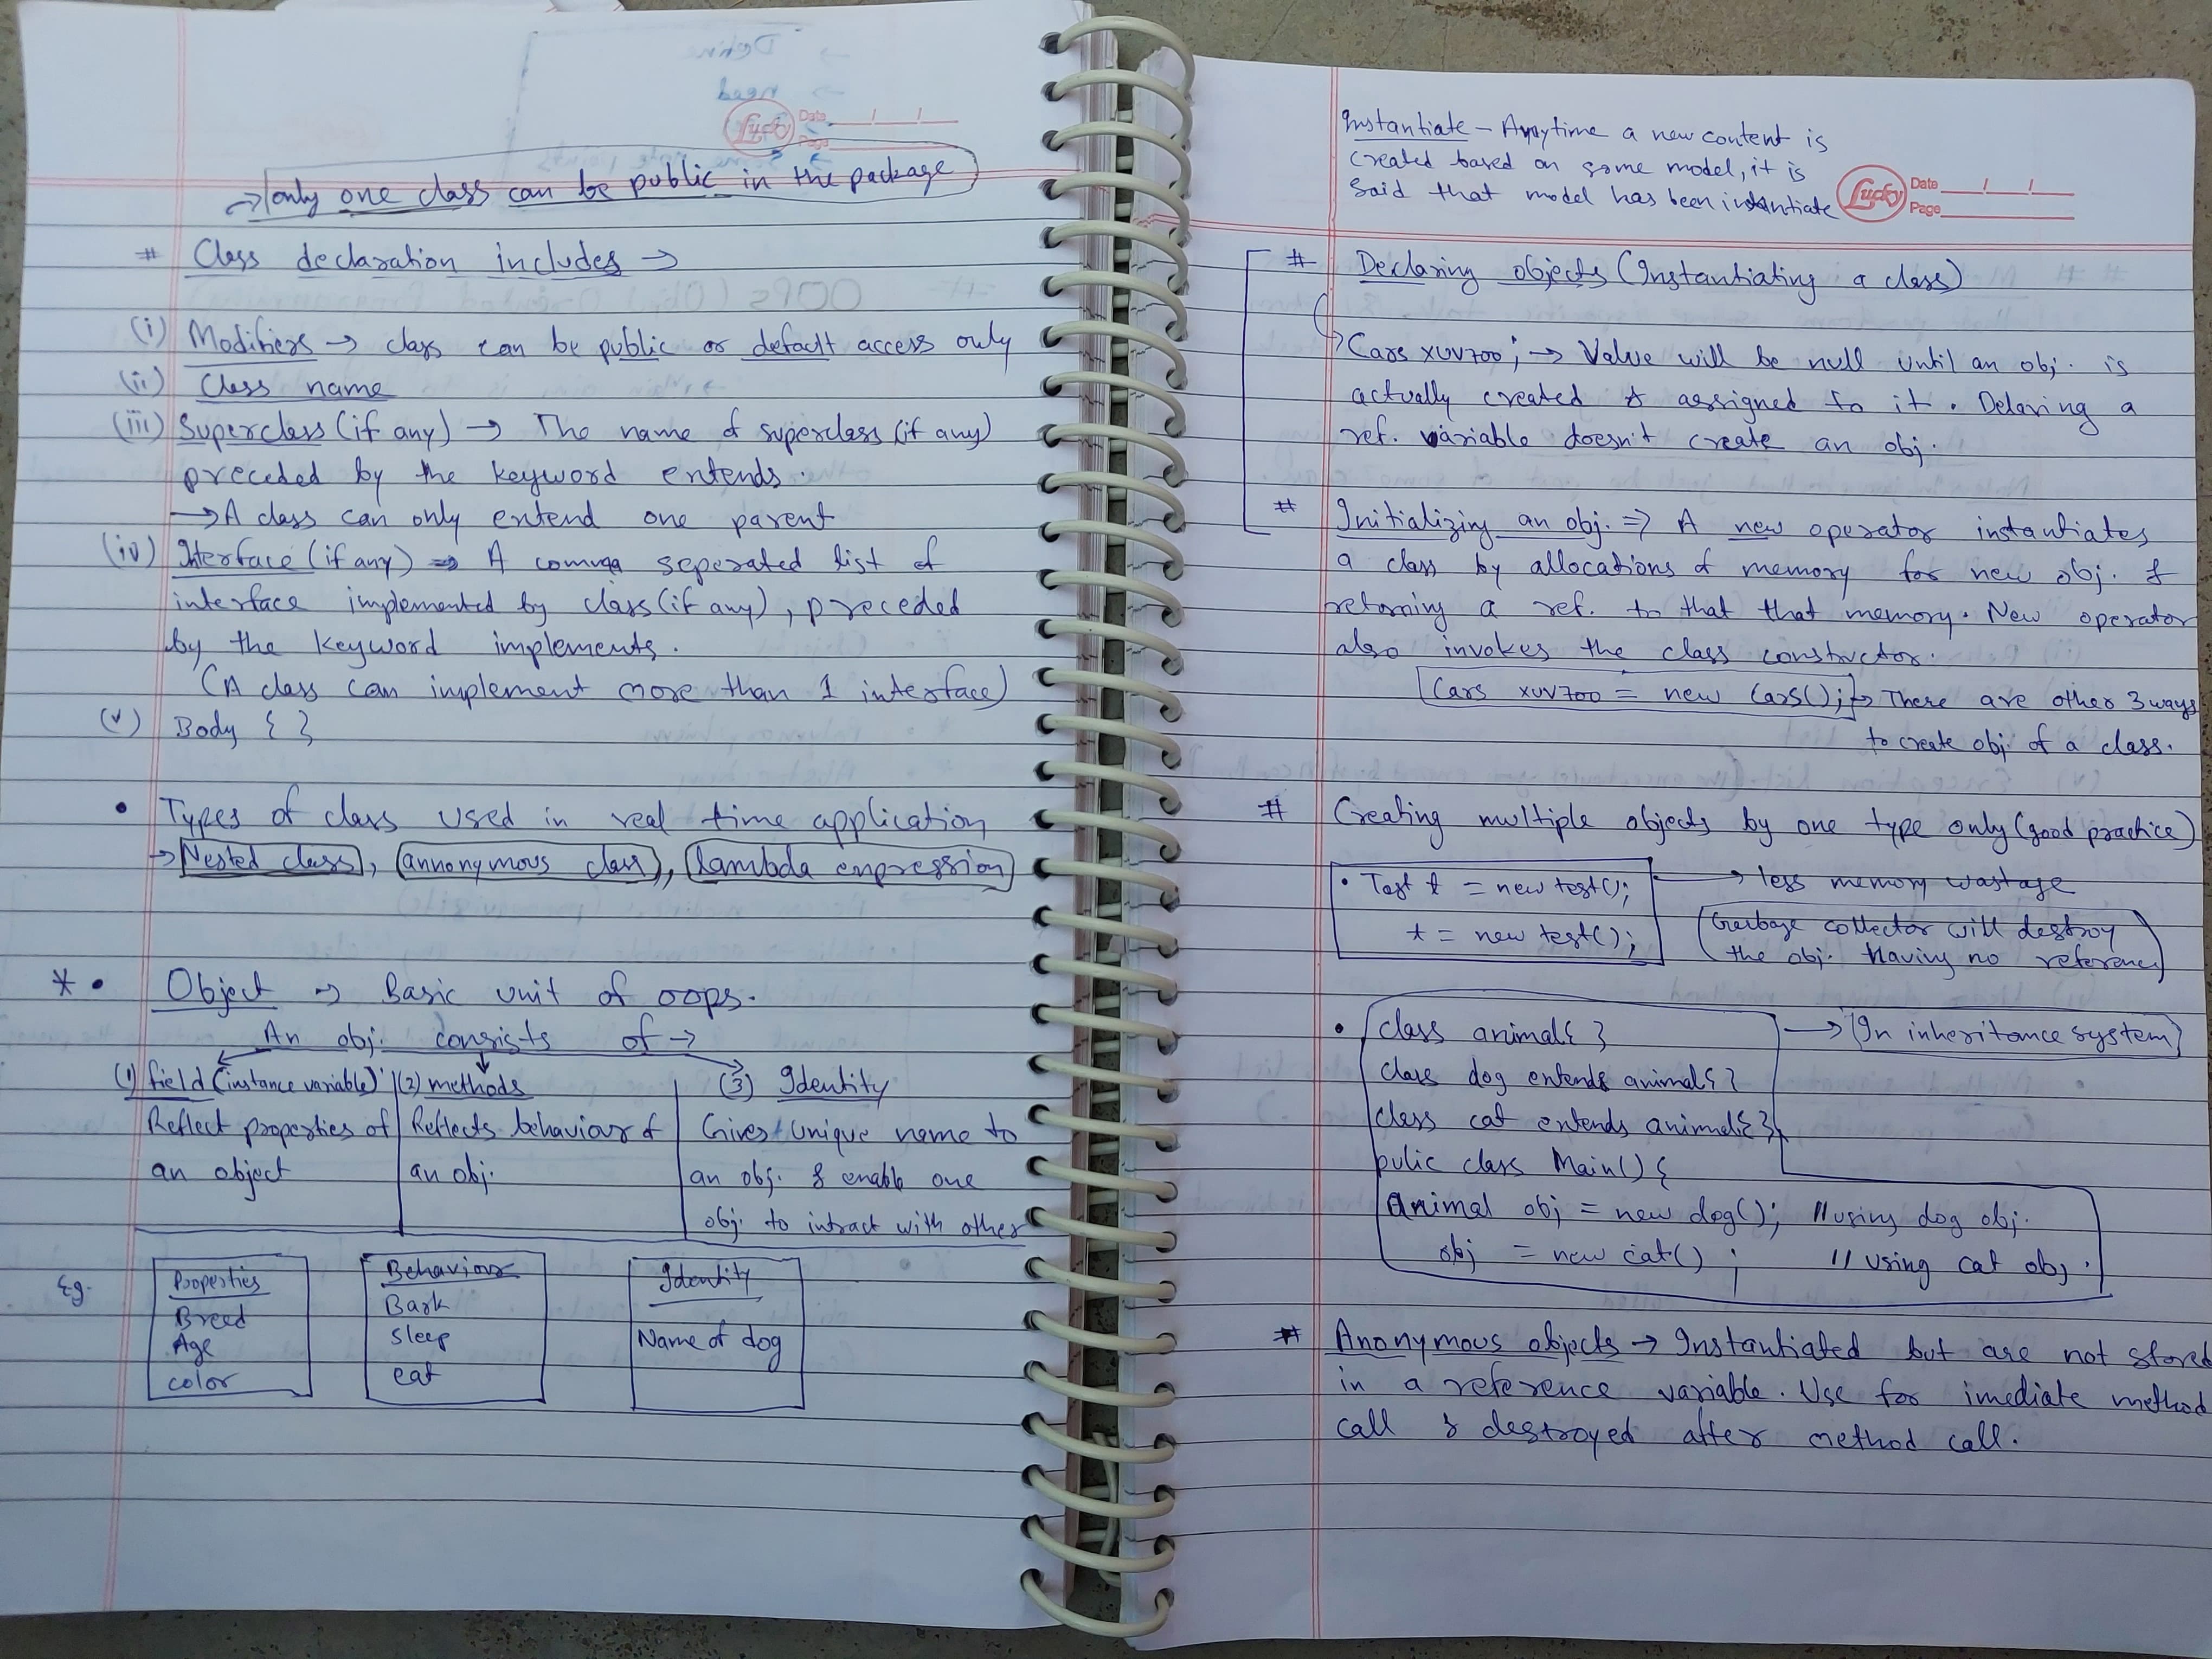 Lucky Date / /
Page
→ only one class can be public in the package
# Class declaration includes →
(i) Modifiers → class can be public or default access only
(ii) Class name
(iii) Superclass (if any) → The name of superclass (if any)
preceded by the keyword extends.
→ A class can only extend one parent
(iv) Interface (if any) → A comma seperated list of
interface implemented by class (if any), preceded
by the keyword implements.
(A class can implement more than 1 interface)
(v) Body { }
• Types of class used in real time application
→ Nested class, annonymous class, lambda expression
* • Object → Basic unit of oops.
An obj. consists of →
(1) field (instance variable) (2) methods (3) Identity
Reflect properties of Reflects behaviour of Gives unique name to
an object an obj. an obj. & enable one
obj. to intract with other
Eg. Properties Behaviour Identity
Breed Bark
Age Sleep Name of dog
color eat
Instantiate - Anytime a new content is
created based on some model, it is
said that model has been instantiate
Lucky Date / /
Page
# Declaring objects (Instantiating a class)
→ Cars XUV700; → Value will be null until an obj. is
actually created & assigned to it. Delaring a
ref. variable doesn't create an obj.
# Initializing an obj. ⇒ A new operator instantiates
a class by allocations of memory for new obj. &
returning a ref. to that that memory. New operator
also invokes the class constructor.
Cars XUV700 = new Cars(); → There are other 3 ways
to create obj. of a class.
# Creating multiple objects by one type only (good practice)
• Test t = new test(); → less memory wastage
t = new test(); (Garbage collector will destroy
the obj. having no reference)
• class animal{ } → In inheritance system
class dog extends animal{ }
class cat extends animal{ }
pulic class Main() {
animal obj = new dog(); //using dog obj.
obj = new cat() ; // using cat obj.
# Anonymous objects → Instantiated but are not stored
in a reference variable. Use for imediate method
call & destroyed after method call.